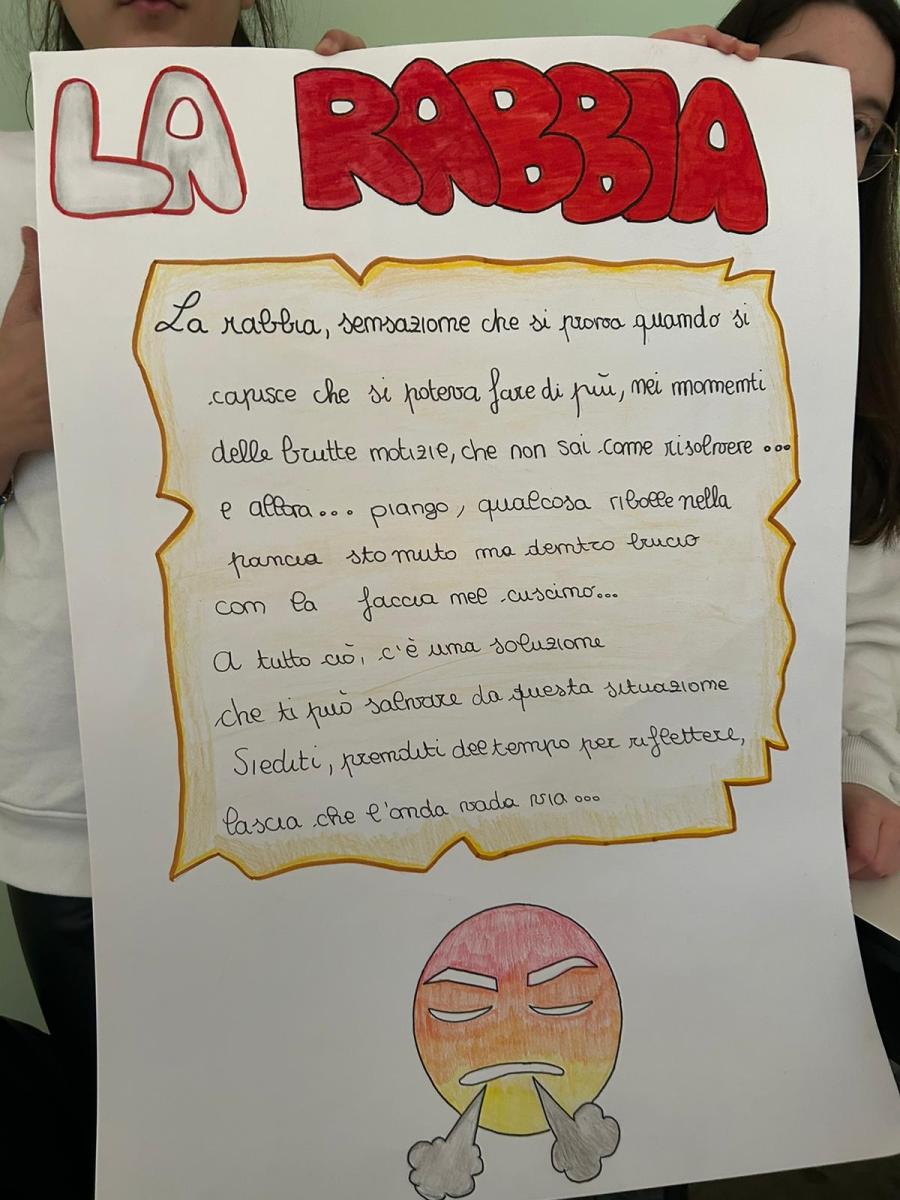 LA RABBIA
La rabbia, sensazione che si prova quando si
capisce che si poteva fare di più, nei momenti
delle brutte notizie, che non sai come risolvere ...
e allora... piango, qualcosa ribolle nella
pancia sto muto ma dentro brucio
con la faccia nel cuscino...
A tutto ciò, c'è una soluzione
che ti può salvare da questa situazione
Siediti, prenditi del tempo per riflettere,
lascia che l'onda vada via ...